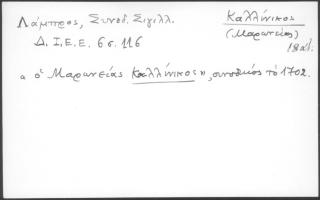 Λάμπρος, Συνοδ. Σιγίλλ.
Δ. Ι. Ε. Ε. 6 σ. 116
Καλλίνικος
(Μαρωνείας)
18 αἰ.
« ὁ Μαρωνείας Καλλίνικος », συνοδικός τὸ 1702.